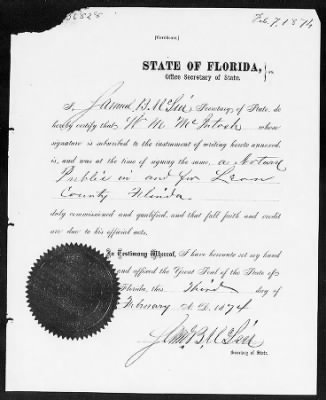 Feb. 7. 1874
STATE OF FLORIDA,
Office Secretary of State.
I, Samuel B. McLin, Secretary of State, do
hereby certify that W. M. McIntosh whose
signature is subscribed to the instrument of writing hereto annexed
is, and was at the time of signing the same, a Notary
Public in and for Leon
County Florida
duly commissioned and qualified, and that full faith and credit
are due to his official acts.
In Testimony Whereof, I have hereunto set my hand
and affixed the Great Seal of the State of
Florida, this Third day of
February A. D. 1874
Saml B. McLin
Secretary of State.